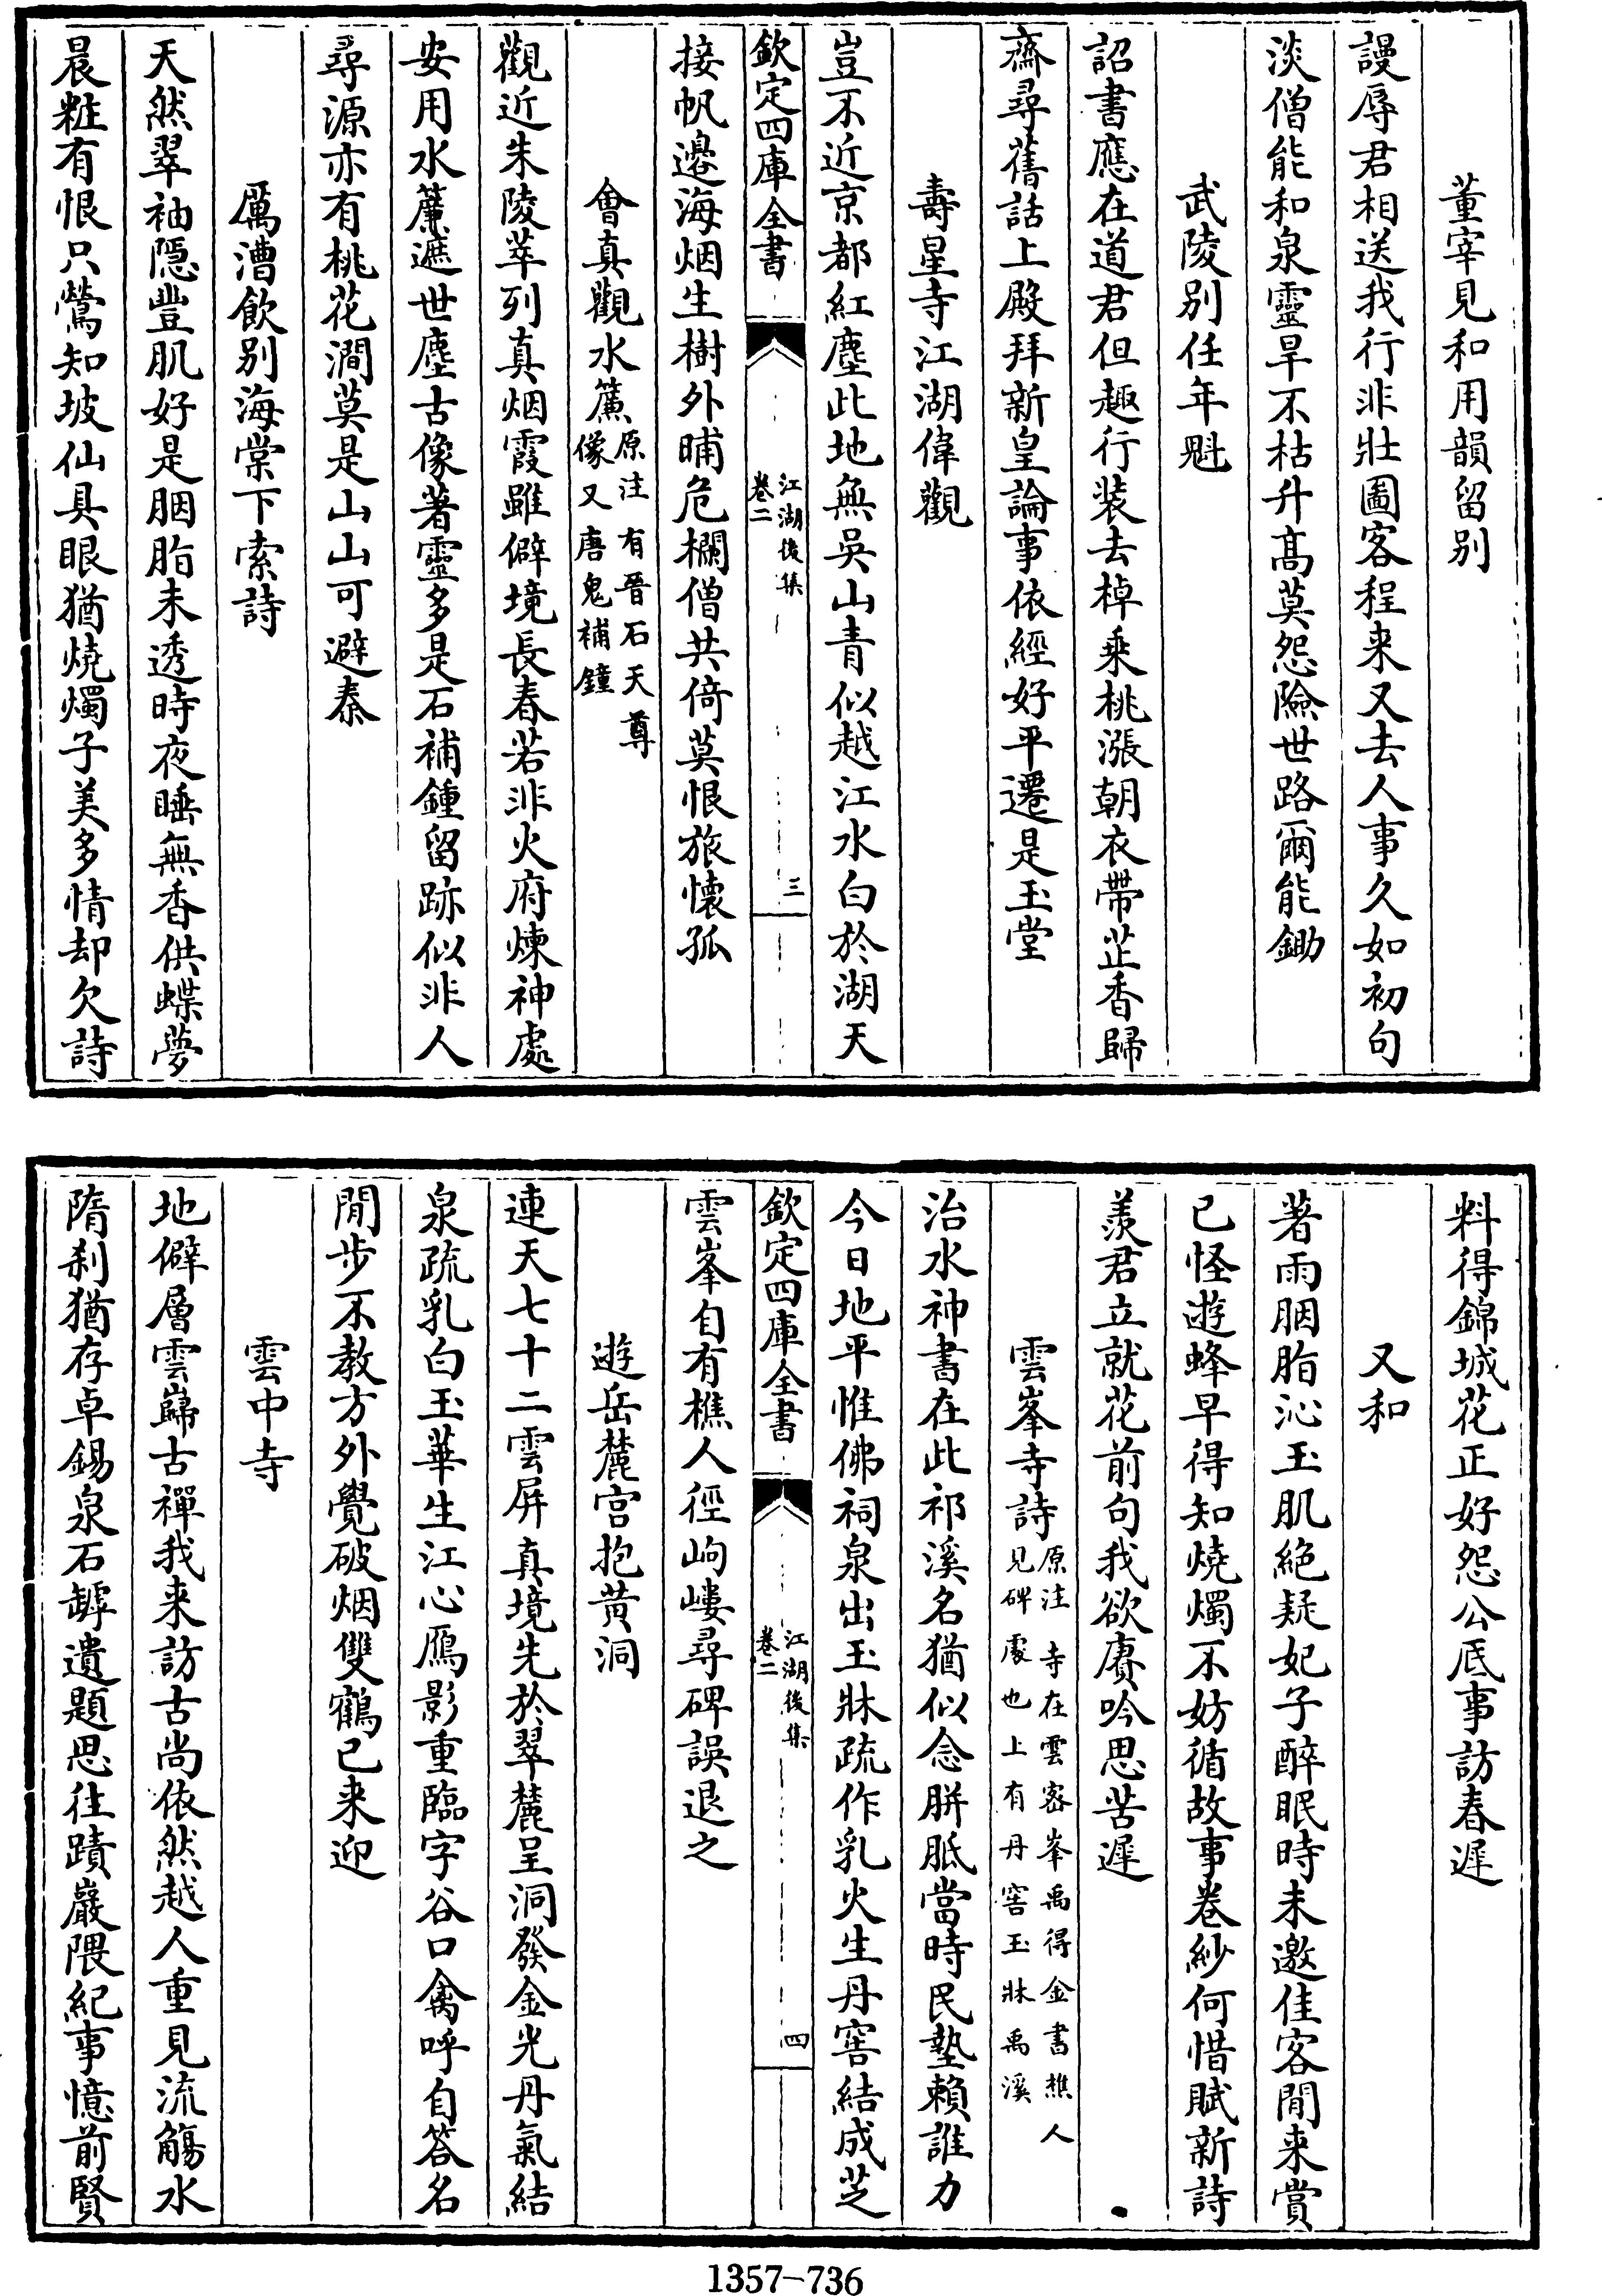 董宰見和用韻留别
謾辱君相送我行非壯圖客程来又去人事久如初句
淡僧能和泉靈旱不枯升髙莫怨險世路爾能鋤
武陵别任年魁
詔書應在道君但趣行装去棹乗桃漲朝衣帶芷香歸
齋尋舊話上殿拜新皇論事依經好平遷是玉堂
壽星寺江湖偉觀
豈不近京都紅塵此地無吳山青似越江水白於湖天
欽定四庫全書
江湖後集
卷二
三
接帆邊海烟生樹外晡危欄僧共倚莫恨旅懐孤
㑹真觀水簾原注有晉石天尊像又唐鬼補鐘
觀近朱陵萃列真烟霞雖僻境長春若非火府煉神處
安用水簾遮世塵古像著靈多是石補鍾留跡似非人
尋源亦有桃花澗莫是山山可避秦
厲漕飲别海棠下索詩
天然翠袖隠豐肌好是胭脂未透時夜睡無香供蝶夢
晨粧有恨只鶯知坡仙具眼猶燒燭子美多情却欠詩
料得錦城花正好怨公底事訪春遲
又和
著雨胭脂沁玉肌絶疑妃子醉眠時未邀佳客閒来賞
已怪遊蜂早得知燒燭不妨循故事卷紗何惜賦新詩
羨君立就花前句我欲賡吟思苦遲
雲峯寺詩原注寺在雲密峯禹得金書樵人見碑處也上有丹窖玉牀禹溪
治水神書在此祁溪名猶似念胼胝當時民墊賴誰力
今日地平惟佛祠泉出玉牀疏作乳火生丹窖結成芝
欽定四庫全書
江湖後集
卷二
四
雲峯自有樵人徑岣嶁尋碑誤退之
遊岳麓宫抱黄洞
連天七十二雲屏真境先於翠麓呈洞發金光丹氣結
泉疏乳白玉華生江心鴈影重臨字谷口禽呼自答名
閒步不教方外覺破烟雙鶴已来迎
雲中寺
地僻層雲歸古禪我来訪古尚依然越人重見流觴水
隋刹猶存卓錫泉石罅遺題思往蹟巖隈紀事憶前賢
1357-736